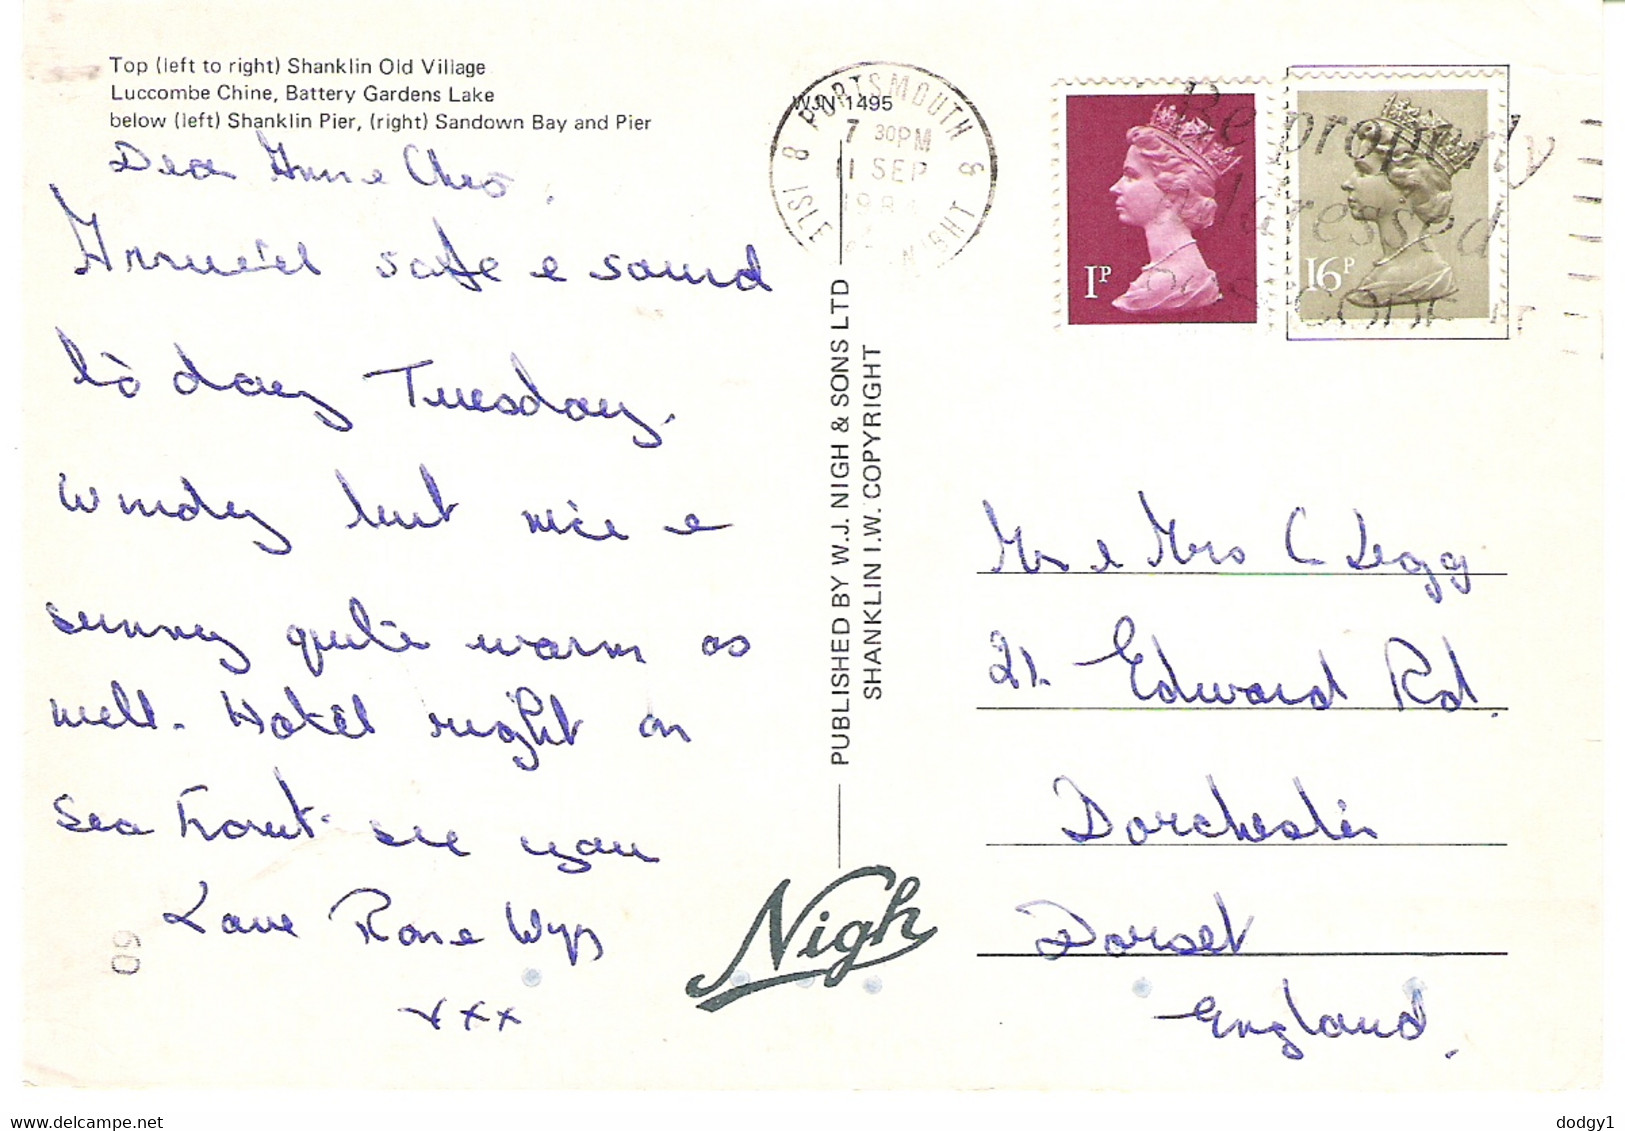 Top (left to right) Shanklin Old Village
Luccombe Chine, Battery Gardens Lake
below (left) Shanklin Pier, (right) Sandown Bay and Pier
WJN 1495
PORTSMOUTH &
ISLE OF WIGHT
7 30PM
11 SEP
Be properly
addressed
1P
16P
Dear Anne Chris,
Arrived safe & sound
to day Tuesday.
Windey but nice &
sunney quite warm as
well. Hotel right on
Sea Front. see you
Love Rose
xxx
PUBLISHED BY W.J. NIGH & SONS LTD
SHANKLIN I.W. COPYRIGHT
Nigh
Mr & Mrs C Legg
21. Edward Rd.
Dorchester
Dorset
England.
60
www.delcampe.net
dodgy1